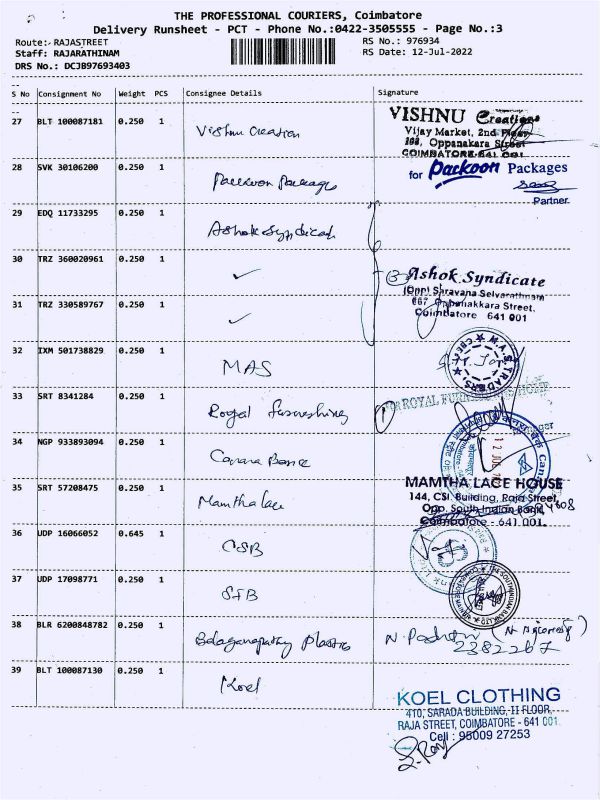 THE PROFESSIONAL COURIERS, Coimbatore
Delivery Runsheet - PCT - Phone No.:0422-3505555 - Page No.:3
Route:- RAJASTREET RS No.: 976934
Staff: RAJARATHINAM RS Date: 12-Jul-2022
DRS No.: DCJB97693403
S No Consignment No Weight PCS Consignee Details Signature
27 BLT 100087181 0.250 1 Vishnu Creation
VISHNU Creations
Vijay Market, 2nd Floor
108, Oppanakara Street
COIMBATORE-641 001
28 SVK 30106200 0.250 1 Packoon Packages
for Packoon Packages
Partner
29 EDQ 11733295 0.250 1 Ashok Syndicate
30 TRZ 360020961 0.250 1 ✓
3 Ashok Syndicate
(Opp) Saravana Selvarathnam
667 Oppanakkara Street,
Coimbatore 641 001
31 TRZ 330589767 0.250 1 ✓
32 IXM 501738829 0.250 1 MAS
M.A.S. TRADERS
33 SRT 8341284 0.250 1 Royal furnishing
FOR ROYAL FURNISHING HOME
34 NGP 933893094 0.250 1 Canara Bank
35 SRT 57208475 0.250 1 Mamtha lace
MAMTHA LACE HOUSE
144, CSI. Building, Raja Street,
Opp. South Indian Bank,
Coimbatore - 641 001.
36 UDP 16066052 0.645 1 CSB
37 UDP 17098771 0.250 1 SIB
THE SOUTH INDIAN BANK LTD
38 BLR 6200848782 0.250 1 Balaganapathy Plastics
2382267
39 BLT 100087130 0.250 1 Koel
KOEL CLOTHING
410, SARADA BUILDING, II FLOOR,
RAJA STREET, COIMBATORE - 641 001
Cell : 95009 27253